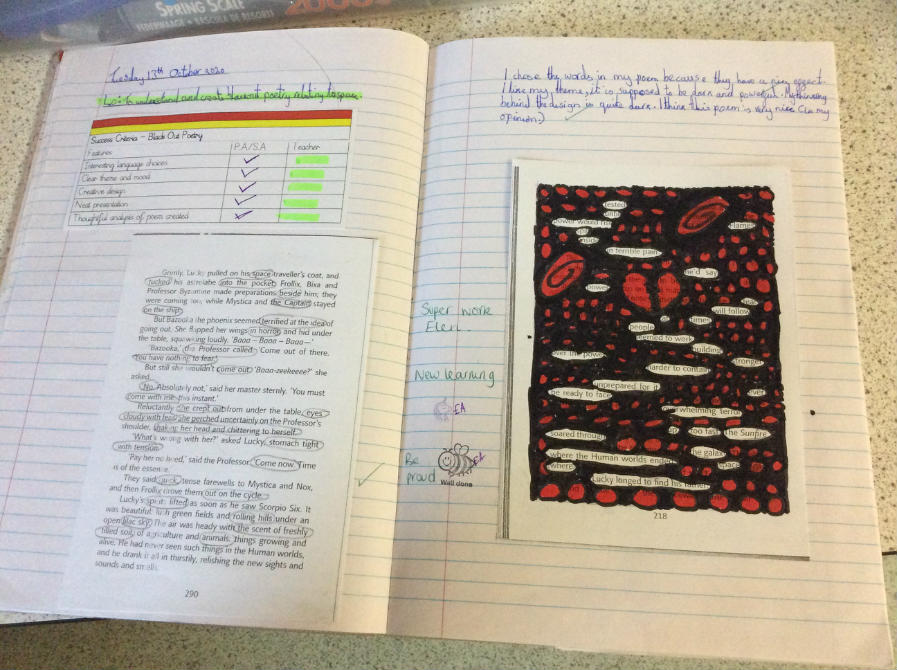 SPRING SCALE
Tuesday 13th October 2020
L.O: To understand and create blackout poetry relating to space.
Success Criteria – Black Out Poetry
Features P.A/S.A Teacher
Interesting language choices
Clear theme and mood
Creative design
Neat presentation
Thoughtful analysis of poem created
Grimly, Lucky pulled on his space traveller's coat, and
tucked his astrolabe into the pocket. Frollix, Bixa and
Professor Byzantine made preparations beside him; they
were coming too, while Mystica and the Captain stayed
on the ship.
But Bazooka the phoenix seemed terrified at the idea of
going out. She flapped her wings in horror and hid under
the table, squawking loudly. 'Baaa – Baaa – Baaa—'
'Bazooka,' the Professor called. 'Come out of there.
You have nothing to fear.'
But still she wouldn't come out. 'Baaa-zeekeeee?' she
asked.
'No. Absolutely not,' said her master sternly. 'You must
come with me this instant.'
Reluctantly she crept out from under the table, eyes
cloudy with fear she perched uncertainly on the Professor's
shoulder, shaking her head and chittering to herself.
'What's wrong with her?' asked Lucky, stomach tight
with tension.
'Pay her no heed,' said the Professor. 'Come now. Time
is of the essence.'
They said quick, tense farewells to Mystica and Nox,
and then Frollix drove them out on the cycle.
Lucky's spirits lifted as soon as he saw Scorpio Six. It
was beautiful, lush green fields and rolling hills under an
open lilac sky. The air was heady with the scent of freshly
tilled soil, of agriculture and animals, things growing and
alive. He had never seen such things in the Human worlds,
and he drank it all in thirstily, relishing the new sights and
sounds and smells.
290
I chose the words in my poem because they have a nice effect.
I like my theme, it is supposed to be dark and powerful. My thinking
behind the design is quite dark. I think this poem is very nice (in my
opinion.)
Super work
New learning
EA
Be
proud
EA
Well done
tested
power would
flame
in terrible pain
he'd say
power
will follow
times
people
seemed to work
building
over the power
stronger
harder to contain
unprepared for it
be ready to face
ever
overwhelming terror
soared through
too fast
The Sunfire
where the Human worlds ended
the galaxy
where
space
Lucky longed to find his father
218